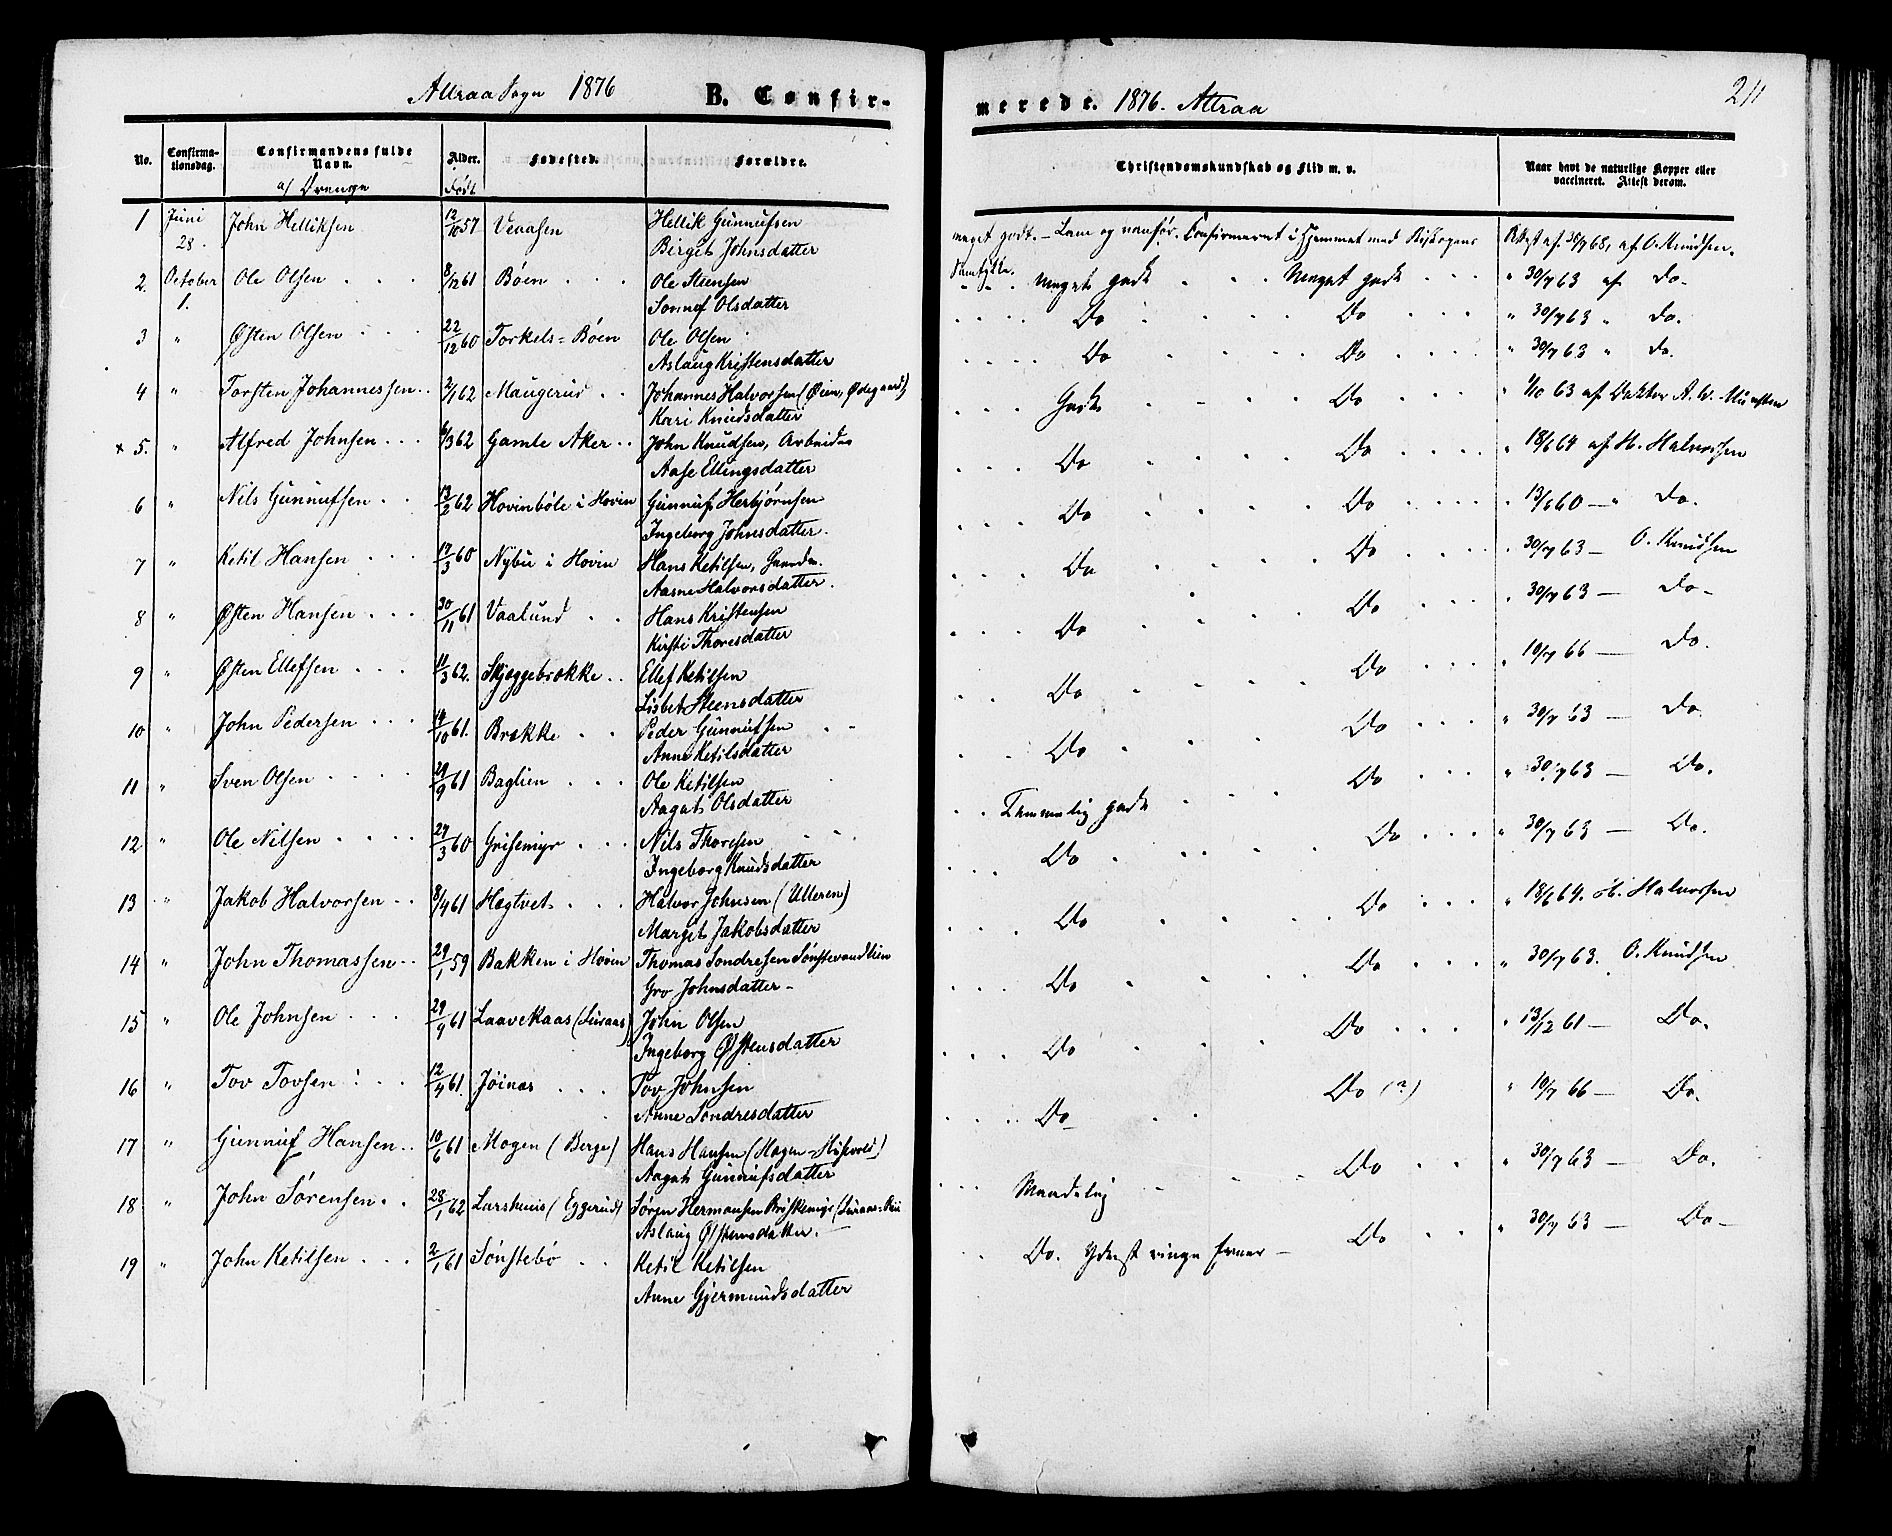 Attraa Sogn 1876
B. Confir-
No.
Confirma-
tionsdag.
Confirmandens fulde
Navn.
af Drenge
Alder.
Født
Fødested.
Forældre.
1 Juni 28. John Helliksen 12/10 57 Veaasen Hellik Gunnufsen
Birget Johnsdatter
2. October 1. Ole Olsen 8/12 61 Bøen Ole Steensen
Sonnef Olsdatter
3 " Østen Olsen 22/12 60 Torkels-Bøen Ole Olsen
Aslaug Kristensdatter
4 " Torsten Johannessen 2/1 62 Maugerud Johannes Halvorsen (Øien, Ødegaard)
Kari Knudsdatter
x 5. " Alfred Johnsen 6/3 62 Gamle Aker John Knudsen, Arbeider
Aase Ellingsdatter
6 " Nils Gunnufsen 13/2 62 Hovinbøle i Hovin Gunnuf Herbjørnsen
Ingeborg Johnsdatter.
7 " Ketil Hansen 17/3 60 Nybu i Hovin Hans Ketilsen, Gaardm.
Aasne Halvorsdatter.
8 " Østen Hansen 30/11 61 Vaalund Hans Kristensen
Kirsti Thoresdatter
9 " Østen Ellefsen 11/3 62. Skjeggebrække Ellef Ketilsen
Lisbet Steensdatter
10 " John Pedersen 14/10 61. Brække Peder Gunnufsen
Anne Ketilsdatter
11 " Sven Olsen 29/9 61 Baglien Ole Ketilsen
Aagat Olsdatter
12 " Ole Nilsen 24/3 60 Grisemyr Nils Thoresen
Ingeborg Knudsdatter
13 " Jakob Halvorsen 8/4 61 Hægtvet Halvor Johnsen (Ulleren)
Margit Jakobsdatter
14 " John Thomassen 29/1 59 Bakken i Hovin Thomas Sondresen Sønstevandlien
Gro Johnsdatter -
15 " Ole Johnsen 29/9 61 Laavekaas (Luraas) John Olsen
Ingeborg Østensdatter
16 " Tov Tovsen 12/4 61. Jøinas Tov Johnsen
Anne Sondresdatter
17 " Gunnuf Hansen 10/6 61 Mogen (Berge) Hans Hansen
Aagat Gunnufsdatter
18 " John Sørensen 28/1 62 Larshuus (Eggerud) Søren Hermansen
Aslaug Østensdatter. -
19 " John Ketilsen 2/1 61 Sønstebø Ketil Ketilsen
Anne Gjermundsdatter
merede. 1876. Attraa
211
Christendomskundskab og Flid m. v.
Naar havt de naturlige Kopper eller
vaccineret. Attest derom.
meget godt. - Lam og vanfør. Confirmeret i Hjemmet med Biskopens
Samtykke.
Attest af 30/7 68, af O. Knudsen.
Meget gode Meget gode " 30/7 63 af Do.
Do Do " 30/7 63 " Do.
Do Do " 30/7 63 " Do.
Gode Do " 1/10 63 af Doktor A. W. Munster
Do Do " 18/6 64 af H. Halvorsen
Do Do " 13/6 60 - " Do.
Do Do " 30/7 63 - O. Knudsen
Do Do " 30/7 63 - Do -
Do Do " 10/7 66 - Do.
Do Do " 30/7 63 - Do.
Temmelig gode Do " 30/7 63 - Do.
Do Do " 30/7 63 - Do.
Do Do " 18/6 64. H. Halvorsen
Do Do " 30/7 63. O. Knudsen
Do Do " 13/12 61 - Do.
Do Do (?) " 10/7 66 - Do.
Maadelig Do " 30/7 63 - Do.
Do. Yderst ringe Evner - Do " 30/7 63 - Do -